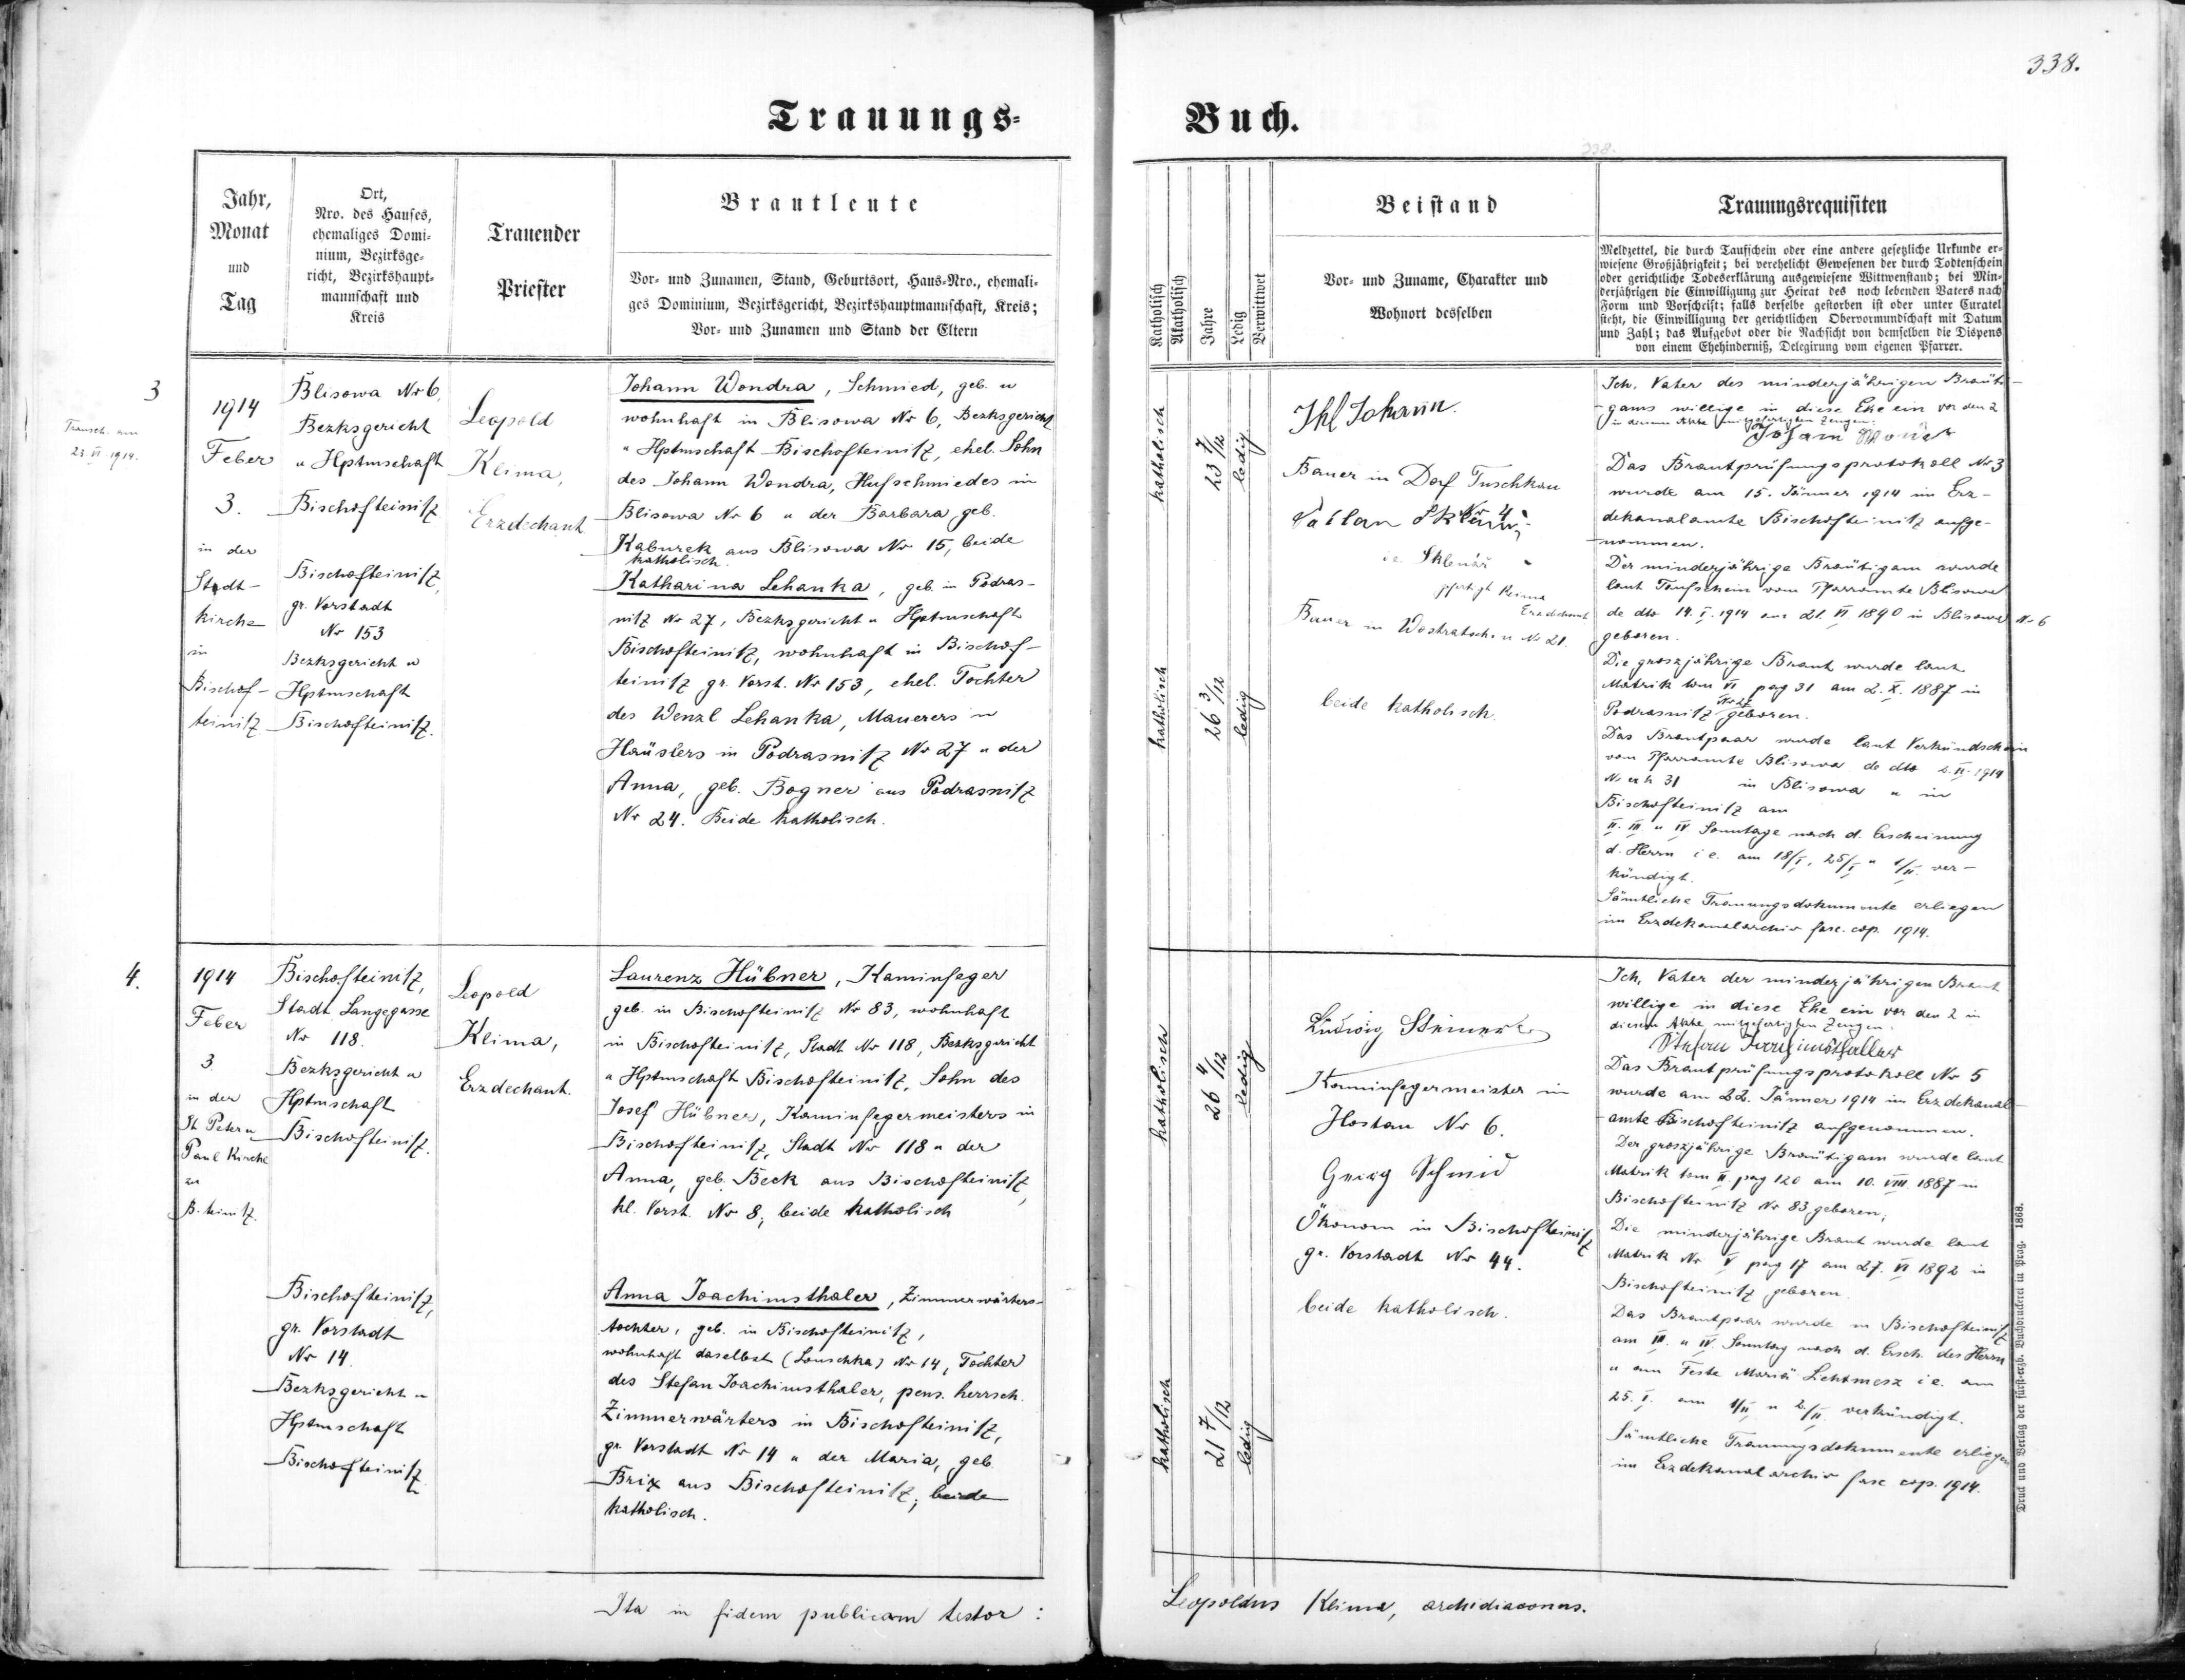 338.
Trauungs-
Buch.
338.
Jahr,
Monat
und
Tag
Ort,
Nro. des Hauses,
ehemaliges Domi-
nium, Bezirksge-
richt, Bezirkshaupt-
mannschaft und
Kreis
Trauender
Priester
Brautleute
Vor- und Zunamen, Stand, Geburtsort, Haus-Nro., ehemali-
ges Dominium, Bezirksgericht, Bezirkshauptmannschaft, Kreis;
Vor- und Zunamen und Stand der Eltern
Katholisch
Akatholisch
Jahre
Ledig
Verwittwet
Beistand
Vor- und Zuname, Charakter und
Wohnort desselben
Trauungsrequisiten
Meldzettel, die durch Taufschein oder eine andere gesetzliche Urkunde er-
wiesene Großjährigkeit; bei verehelicht Gewesenen der durch Todtenschein
oder gerichtliche Todeserklärung ausgewiesene Wittwenstand; bei Min-
derjährigen die Einwilligung zur Heirat des noch lebenden Vaters nach
Form und Vorschrift; falls derselbe gestorben ist oder unter Curatel
steht, die Einwilligung der gerichtlichen Obervormundschaft mit Datum
und Zahl; das Aufgebot oder die Nachsicht von demselben die Dispens
von einem Ehehinderniß, Delegirung vom eigenen Pfarrer.
3
Transch. am
23. VI. 1914.
1914
Feber
3.
in der
Stadt-
kirche
in
Bischof-
teinitz
Blisowa Nr 6,
Bezksgericht
u Hptmschaft
Bischofteinitz
Bischofteinitz,
gr. Vorstadt
Nr 153
Bezksgericht u
Hptmschaft
Bischofteinitz.
Leopold
Klima,
Erzdechant
Johann Wondra, Schmied, geb. u
wohnhaft in Blisowa Nr 6, Bezksgericht
u Hptmschaft Bischofteinitz, ehel. Sohn
des Johann Wondra, Hufschmiedes in
Blisowa Nr 6 u der Barbara, geb.
Kaburek aus Blisowa Nr 15, beide
katholisch.
Katharina Lehanka, geb. in Podras-
nitz Nr 27, Bezksgericht u Hptmschaft
Bischofteinitz, wohnhaft in Bischof-
teinitz gr. Vorst. Nr 153, ehel. Tochter
des Wenzl Lehanka, Maurers u
Häuslers in Podrasnitz Nr 27 u der
Anna, geb. Bogner aus Podrasnitz
Nr 24. Beide katholisch.
katholisch
23 7/12
ledig
katholisch
26 3/12
ledig
Ihl Johann.
Bauer in Dorf Tuschkau
Nr 4
ie Sklenář
Klima
Erzdechant
Bauer in Wostratschin Nr 21.
beide katholisch.
Ich, Vater des minderjährigen Bräuti-
gams willige in diese Ehe ein vor den 2
in diesem Akte mitgefertigten Zeugen.
Das Brautprüfungsprotokoll Nr 3
wurde am 15. Jänner 1914 im Erz-
dekanalamte Bischofteinitz aufge-
nommen.
Der minderjährige Bräutigam wurde
laut Taufschein vom Pfarramte Blisowa
de dto 14. I. 1914 am 21. VI 1890 in Blisowa Nr 6
geboren.
Die groszjährige Braut wurde laut
Matrik tom VI pag 31 am 2. X. 1887 in
Podrasnitz Nr 27 geboren.
Das Brautpaar wurde laut Verkündschein
vom Pfarramte Blisowa de dto 2. II. 1914
N. exh 31 in Blisowa u in
Bischofteinitz am
II. III u IV Sonntage nach d. Erscheinung
d. Herrn i e. am 18/I, 25/I u 1/II ver-
kündigt.
Sämtliche Trauungsdokumente erliegen
im Erzdekanalarchiv fasc. cop. 1914.
4.
1914
Feber
3
in der
St Peter u
Paul Kirche
zu
B. teinitz.
Bischofteinitz,
Stadt Langegasse
Nr 118.
Bezksgericht u
Hptmschaft
Bischofteinitz.
Bischofteinitz,
gr. Vorstadt
Nr 14.
Bezksgericht u
Hptmschaft
Bischofteinitz
Leopold
Klima,
Erzdechant.
Laurenz Hübner, Kaminfeger
geb. in Bischofteinitz Nr 83, wohnhaft
in Bischofteinitz, Stadt Nr 118, Bezksgericht
u Hptmschaft Bischofteinitz, Sohn des
Josef Hübner, Kaminfegermeisters in
Bischofteinitz, Stadt Nr 118 u der
Anna, geb. Beck aus Bischofteinitz,
kl. Vorst. Nr 8; beide katholisch
Anna Joachimsthaler, Zimmerwärters-
tochter, geb. in Bischofteinitz,
wohnhaft daselbst (Louschka) Nr 14, Tochter
des Stefan Joachimsthaler, pens. herrsch.
Zimmerwärters in Bischofteinitz,
gr. Vorstadt Nr 14 u der Maria, geb.
Brix aus Bischofteinitz; beide
katholisch.
katholisch
26 4/12
ledig
katholisch
21 7/12
ledig
Ludwig Steiner
Kaminfegermeister in
Hostau Nr 6.
Georg Schmid
Ökonom in Bischofteinitz
gr. Vorstadt Nr 44.
beide katholisch.
Ich, Vater der minderjährigen Braut
willige in diese Ehe ein vor den 2 in
diesem Akte mitgefertigten Zeugen.
Stefan Joachimsthaller
Das Brautprüfungsprotokoll Nr 5
wurde am 22. Jänner 1914 im Erzdekanal-
amte Bischofteinitz aufgenommen.
Der groszjährige Bräutigam wurde laut
Matrik tom II pag 120 am 10. VIII. 1887 in
Bischofteinitz Nr 83 geboren;
Die minderjährige Braut wurde laut
Matrik Nr V pag 17 am 27. VI 1892 in
Bischofteinitz geboren.
Das Brautpaar wurde in Bischofteinitz
am III. u IV. Sonntag nach d. Ersch. des Herrn
u am Feste Mariä Lichtmesz i e. am
25. I. am 1/II u 2/II. verkündigt.
Sämtliche Trauungsdokumente erliegen
im Erzdekanalarchiv fasc cop. 1914.
Druck und Verlag der fürst-erzb. Buchdruckerei in Prag. 1868.
Ita in fidem publicam testor:
Leopoldus Klima, archidiaconus.